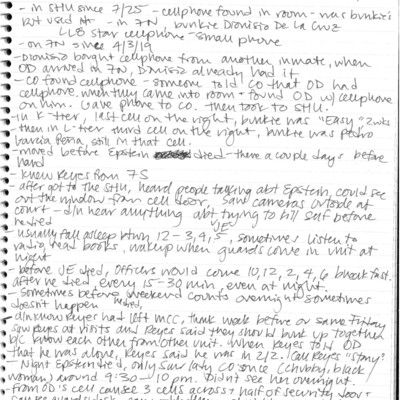 - in SHU since 7/25 - cellphone found in room - was bunkie's
but used it - in 7N, bunkie Dionisio De La Cruz
LLB star cellphone - small phone
- on 7N since 4/3/19
- Dionisio bought cellphone from another inmate, when
OD arrived in 7N, Dionisio already had it
- CO found cellphone - someone told CO that OD had
cellphone. when they came into room + found OD w/ cellphone
on him. Gave phone to CO. then took to SHU.
- in K-tier, last cell on the right, bunkie was "Easy" 2wks
- then in L-tier third cell on the right, bunkie was Pedro
Garcia Peña, still in that cell.
- moved before Epstein died - there a couple days before
hand
- knew Reyes from 7S
- after got to the SHU, heard people talking abt Epstein, could see
out the window from cell door, saw cameras outside at
court - d/n hear anything abt trying to kill self before
he died
- usually fall asleep btwn 12-3, 4, 5, sometimes listen to
radio, read books, wakeup when guards come in unit at
night
- before JE died, officers would come 10, 12, 2, 4, 6 breakfast.
after he died, every 15-30 min, even at night.
- sometimes before weekend counts overnight sometimes
doesn't happen
- d/n know Reyes had left MCC, think week before or same Friday
saw Reyes at visits and Reyes said they should bunk up together
b/c know each other from other unit. When Reyes told OD
that he was alone, Reyes said he was in 2/2. Call Reyes "Stony"
- Night Epstein died, only saw lady CO once (chubby, black
woman) around 9:30-10pm. Didn't see her overnight.
from OD's cell can see 3 cells across + half of security door +